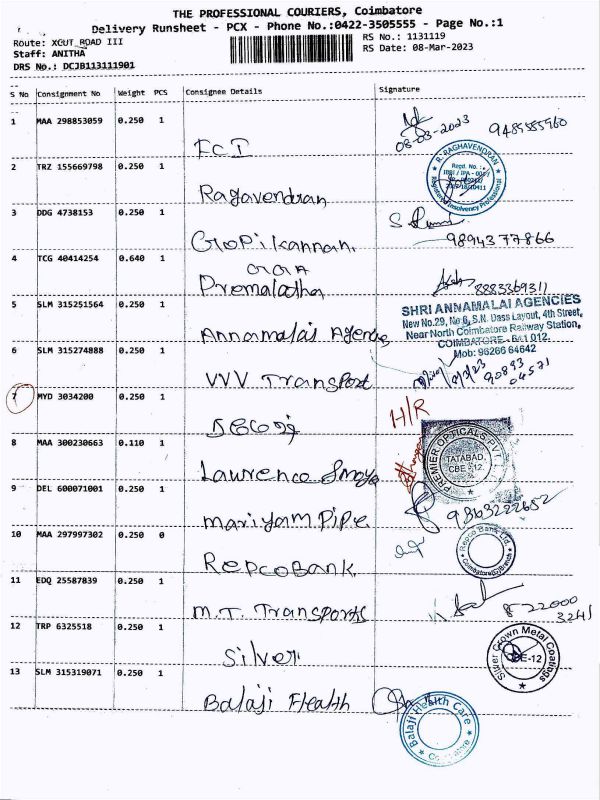 THE PROFESSIONAL COURIERS, Coimbatore
Delivery Runsheet - PCX - Phone No.:0422-3505555 - Page No.:1
Route: XCUT ROAD III
RS No.: 1131119
Staff: ANITHA
RS Date: 08-Mar-2023
DRS No.: DCJB113111901
S No Consignment No Weight PCS Consignee Details Signature
1 MAA 298853059 0.250 1
08-03-2023 9485585960
FCI
2 TRZ 155669798 0.250 1
R. RAGHAVENDRAN
Regd. No.:
Insolvency Professional
Ragavendran
3 DDG 4738153 0.250 1
Gopikannan
9894377866
4 TCG 40414254 0.640 1
Premalatha
8883369311
5 SLM 315251564 0.250 1
SHRI ANNAMALAI AGENCIES
New No.29, No 6, S.N. Dass Layout, 4th Street,
Near North Coimbatore Railway Station,
COIMBATORE - 641 012.
Mob: 96266 64642
Annamalai Agencies
6 SLM 315274888 0.250 1
VVV Transport
90893
04571
7 MYD 3034200 0.250 1
H/R
8 MAA 300230663 0.110 1
PREMIER OPTICALS PVT.
TATABAD,
CBE - 12.
Lawrence
9 DEL 600071001 0.250 1
mariyam Pipe
9363222652
10 MAA 297997302 0.250 0
Repco Bank Ltd
RepcoBank
11 EDQ 25587839 0.250 1
M.T. Transports
822000
3241
12 TRP 6325518 0.250 1
Silver
Silver Crown Metal Coatings
CBE-12
13 SLM 315319071 0.250 1
Balaji Health
Balaji Health Care
Coimbatore